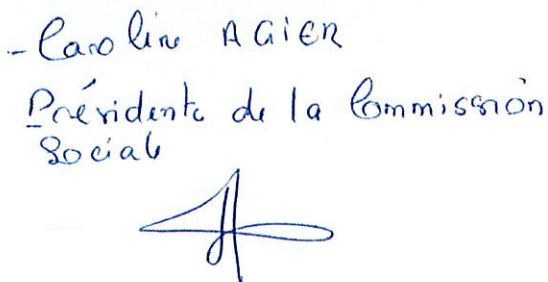 - Caroline AGIER
Présidente de la Commission
Sociale